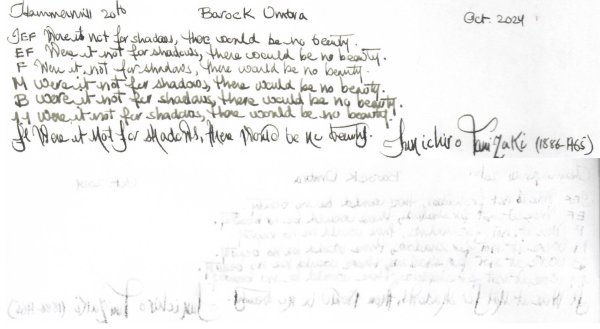 Hammermill 20lb Barock Umbra Oct. 2024
JEF Were it not for shadows, there would be no beauty.
EF Were it not for shadows, there would be no beauty.
F Were it not for shadows, there would be no beauty.
M Were it not for shadows, there would be no beauty.
B were it not for shadows, there would be no beauty.
1.1 were it not for shadows, there would be no beauty.
Were it Not for shadows, there Would be no beauty. Junichiro Tanizaki (1886-1965)